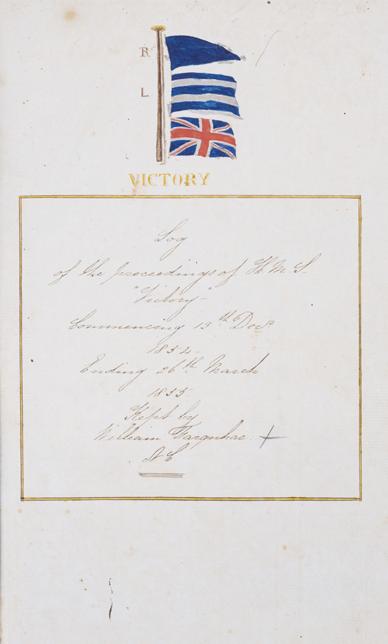 R
L
VICTORY
Log
of the proceedings of H M S
"Victory"
Commencing 13th Decr
1854.
Ending 26th March
1855
Kept by
William Farquhar